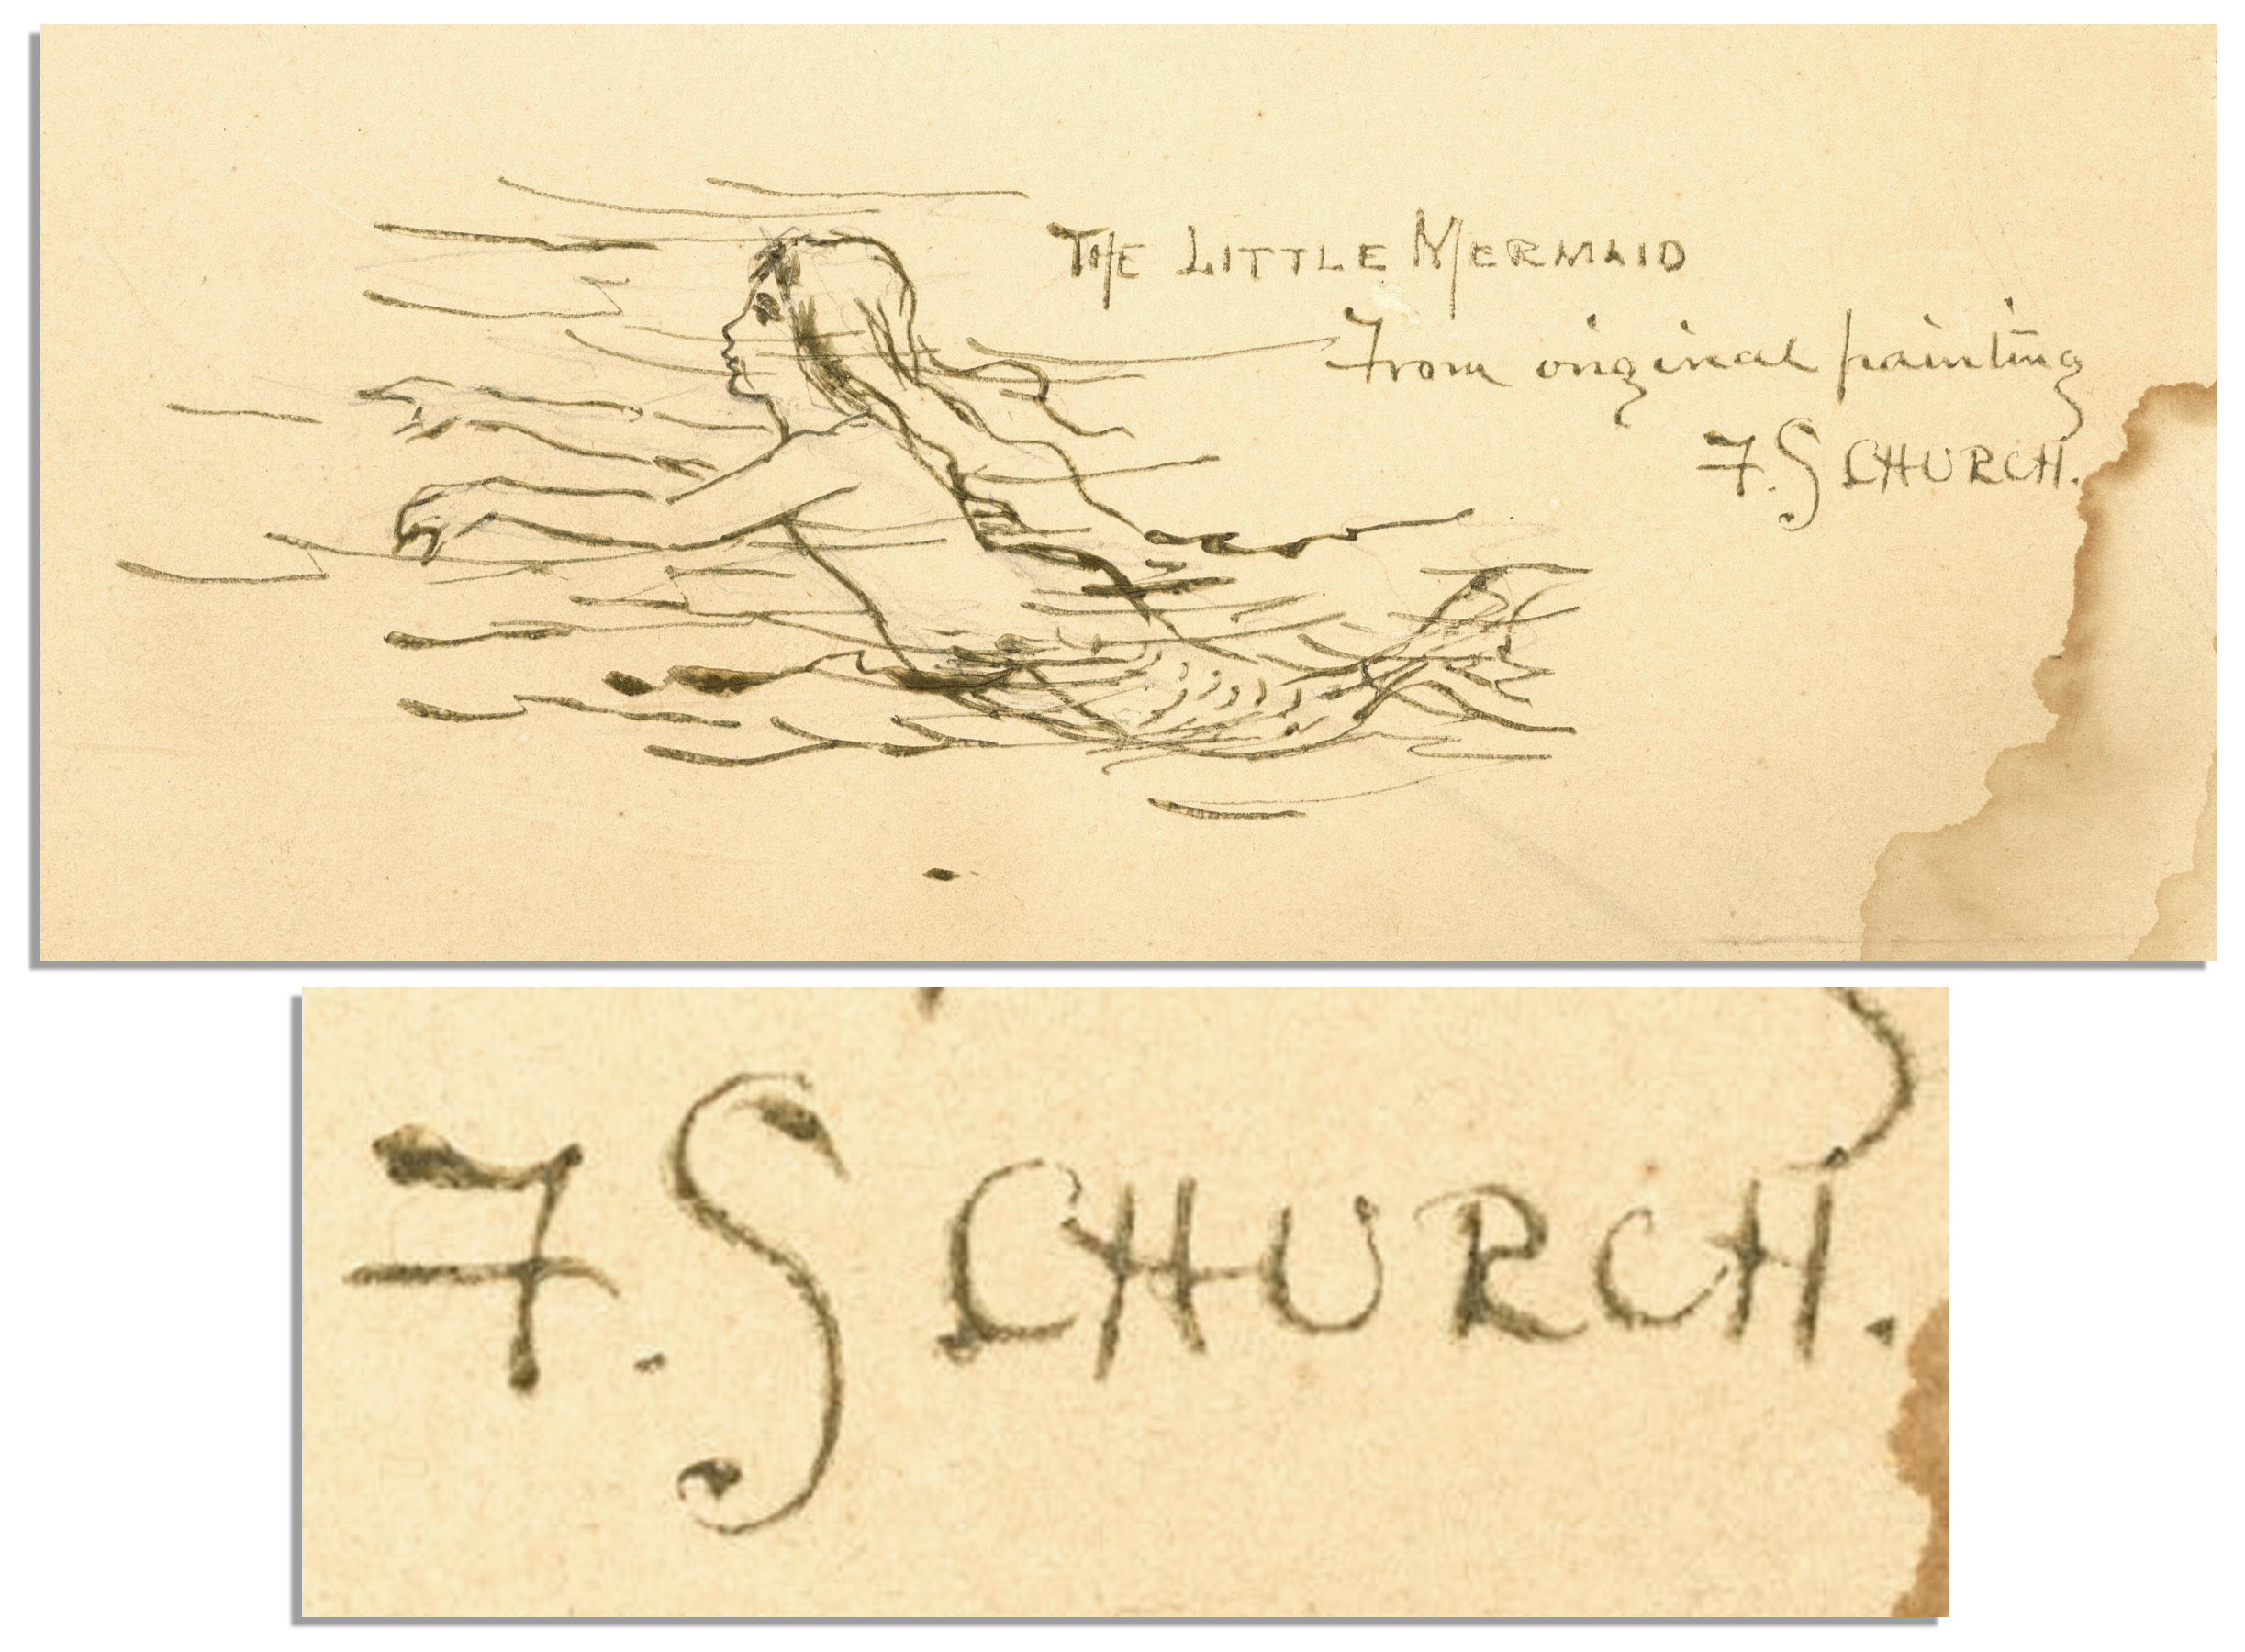 THE LITTLE MERMAID
From original painting
F. S CHURCH.
F. S CHURCH.